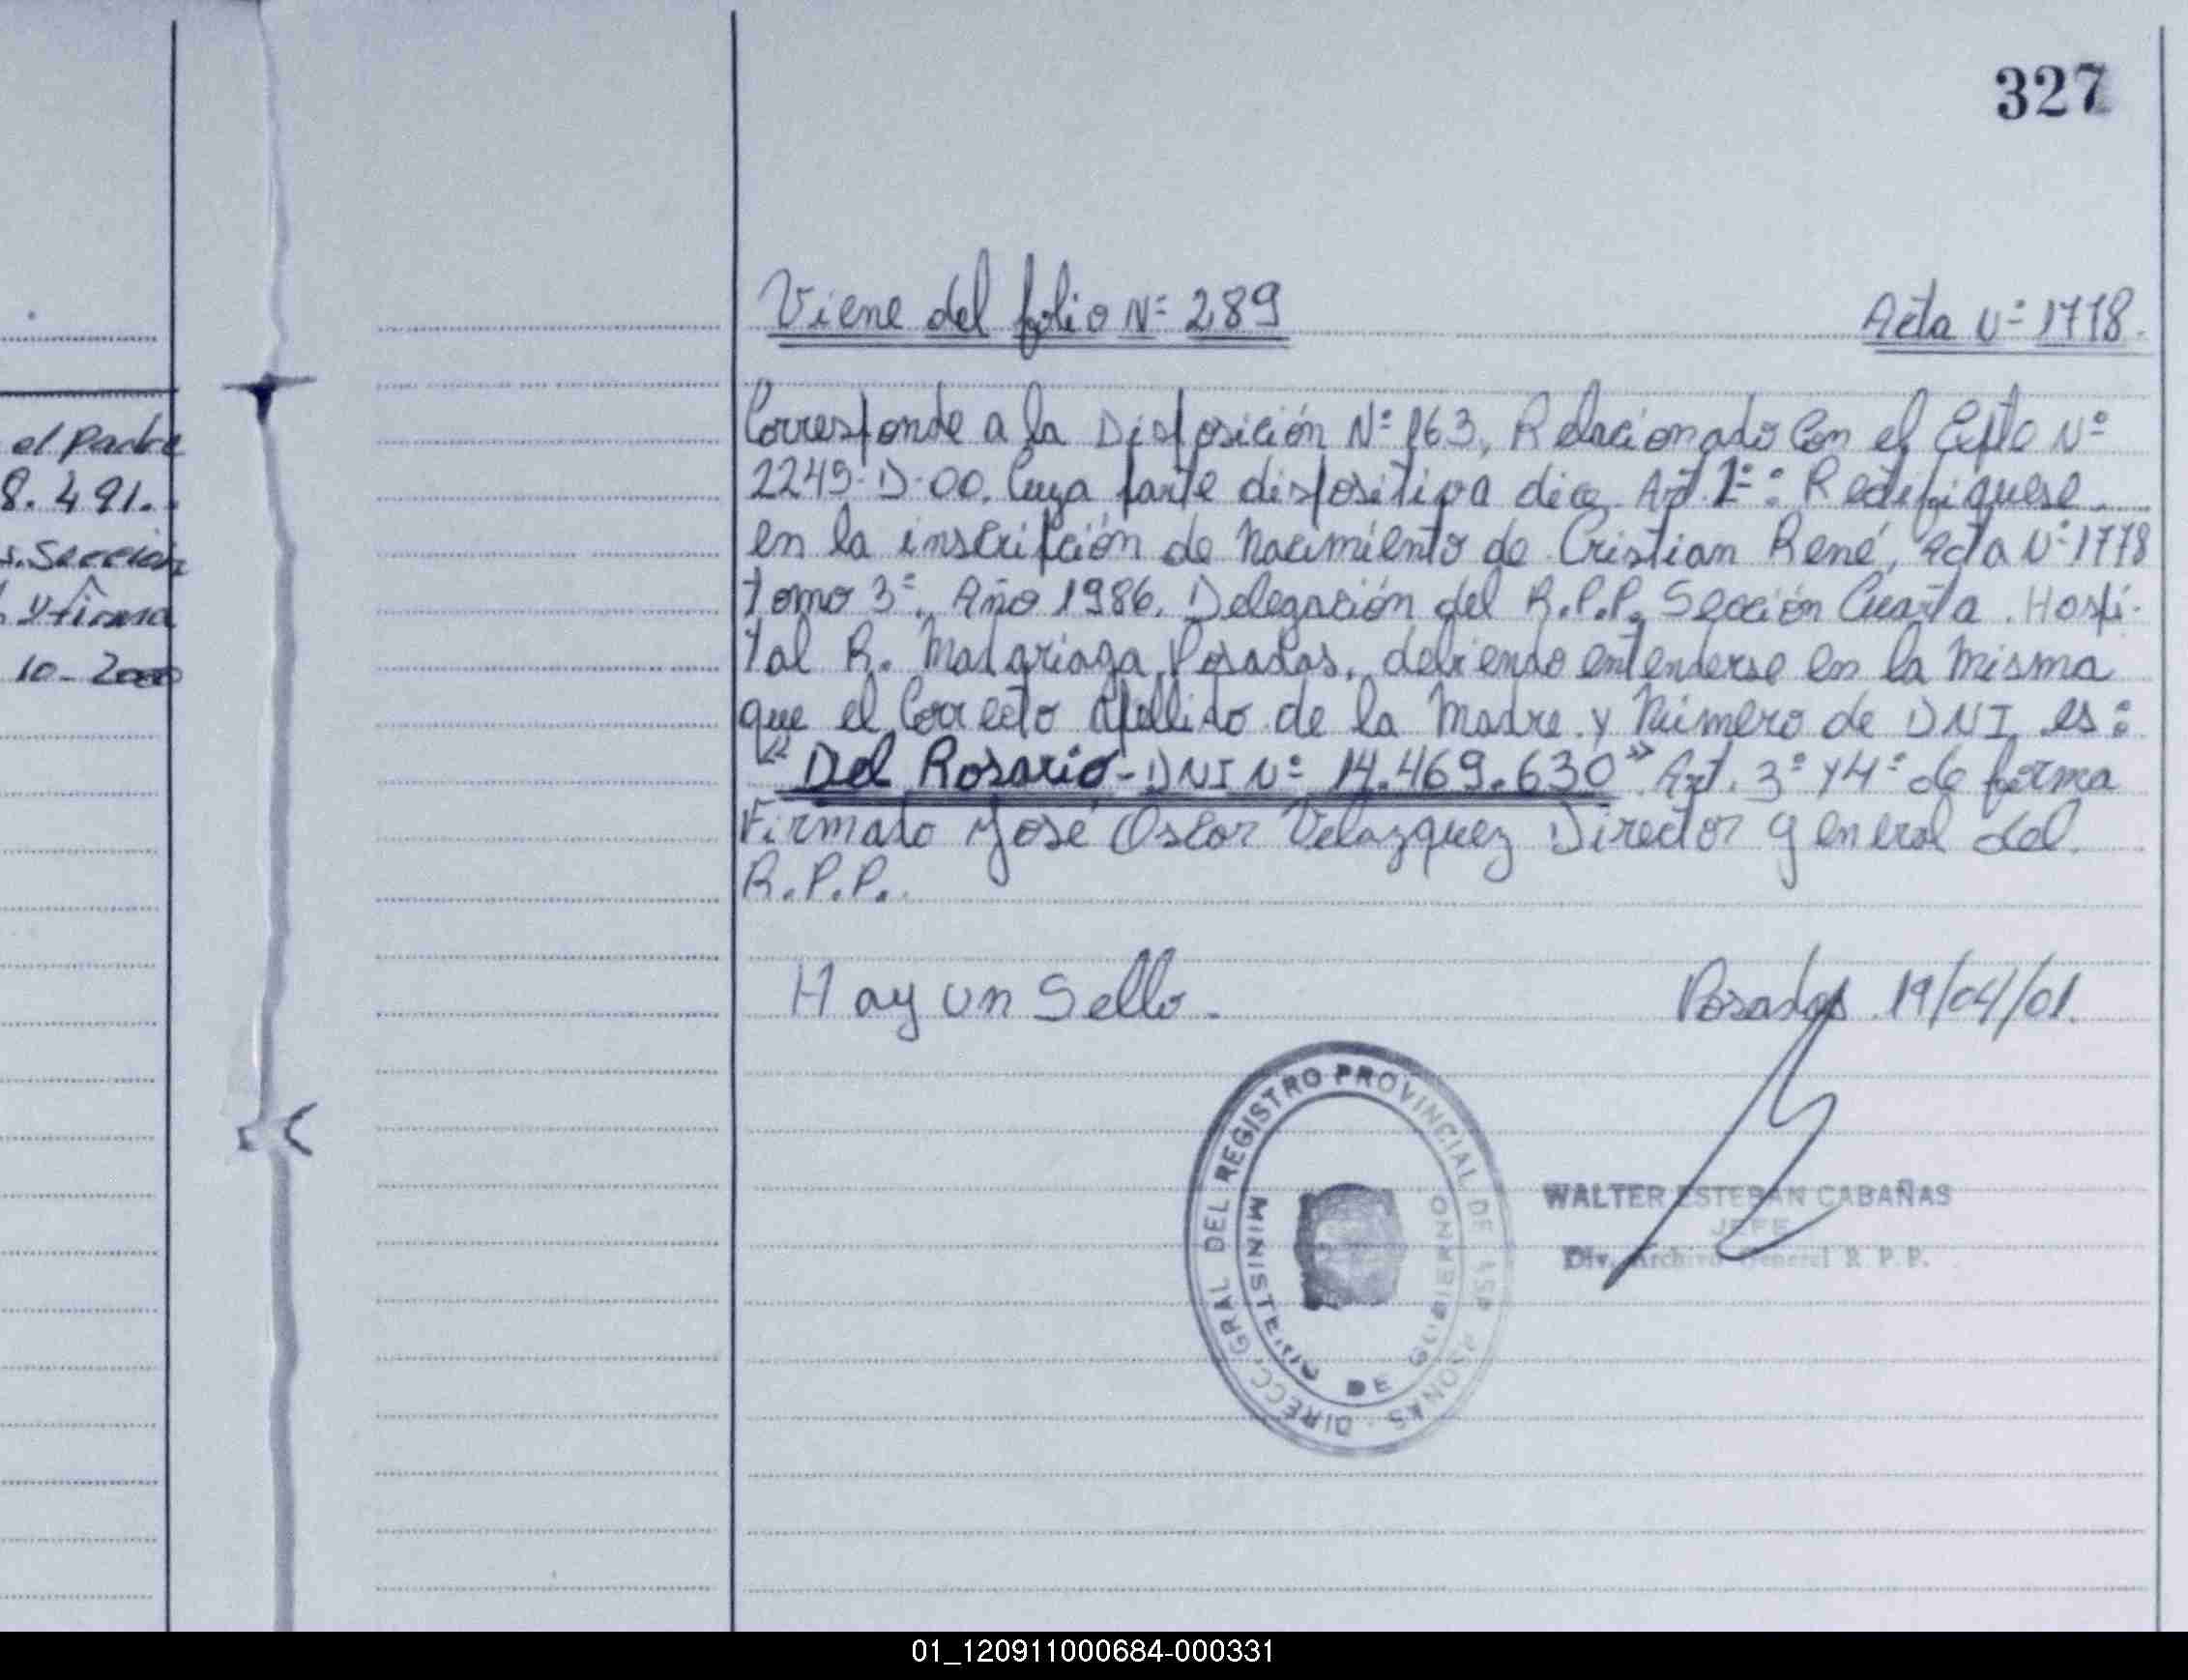 327
Viene del folio Nº 289
Acta Nº 1778.
el Padre
8.491.
s. Sección
y firma
10-2000
Corresponde a la Disposición Nº 163, Relacionado Con el Expte Nº
2249-D-00. Cuya parte dispositiva dice Art. 1º: Rectifiquese
en la inscripción de nacimiento de Cristian René, Acta Nº 1778
tomo 3º. Año 1986. Delegación del R.P.P. Sección Cuarta. Hospi-
tal R. Madariaga Posadas, debiendo entenderse en la misma
que el Correcto Apellido de la Madre y Número de DNI es:
"Del Rosario - DNI Nº 14.469.630" Art. 3º y 4º de forma
Firmado José Oscar Velazquez Director general del
R.P.P.
Hay un Sello.
Posadas 19/04/01.
DIRECC. GRAL DEL REGISTRO PROVINCIAL DE LAS PERSONAS
MINISTERIO DE GOBIERNO
WALTER ESTEBAN CABAÑAS
JEFE
Div. Archivo General R. P. P.
01_120911000684-000331